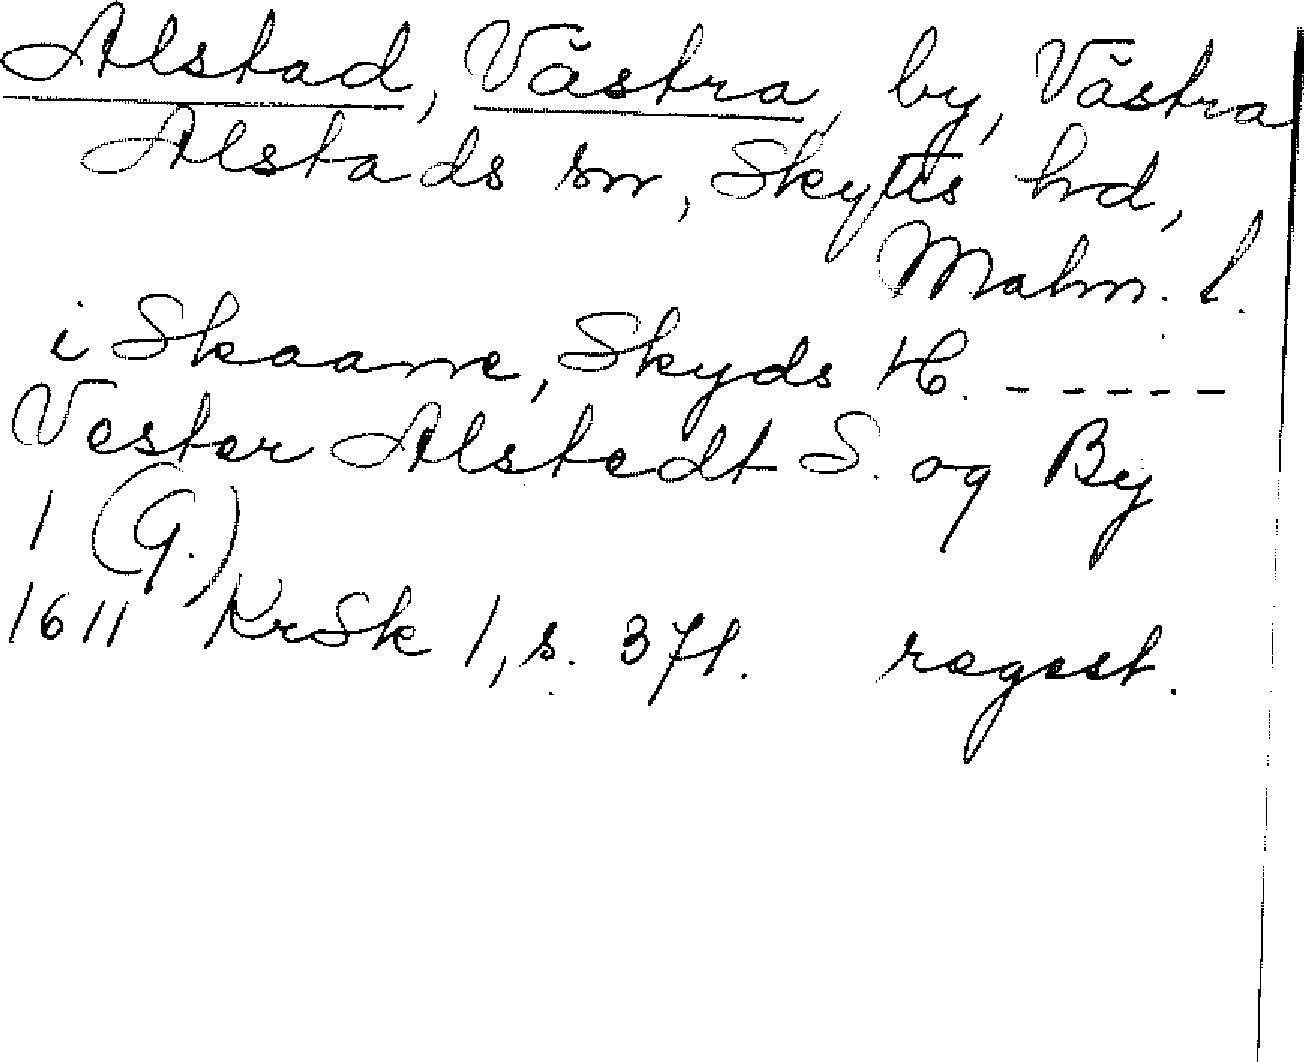 Alstad, Västra, by, Västra
Alstads sn, Skytts hd,
Malm. l.
i Skaane, Skyds H. - - - - -
Vester Alstedt S. og By
1 (G.)
1611 KrSk 1, s. 371. regest.